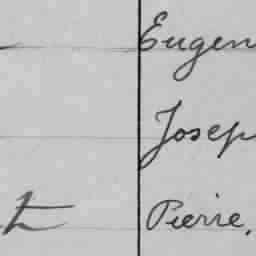 Eugen
Josep
t Pierre,